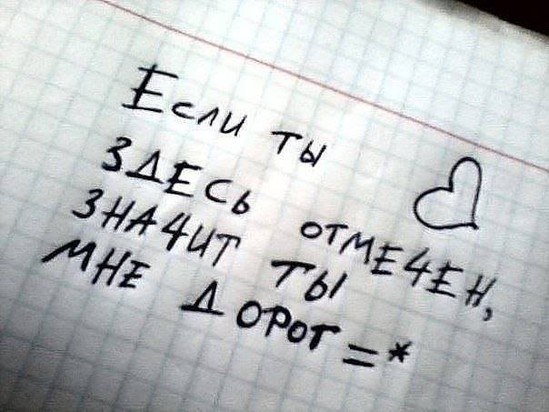 Если ты
здесь отмечен,
значит ты
мне дорог =*